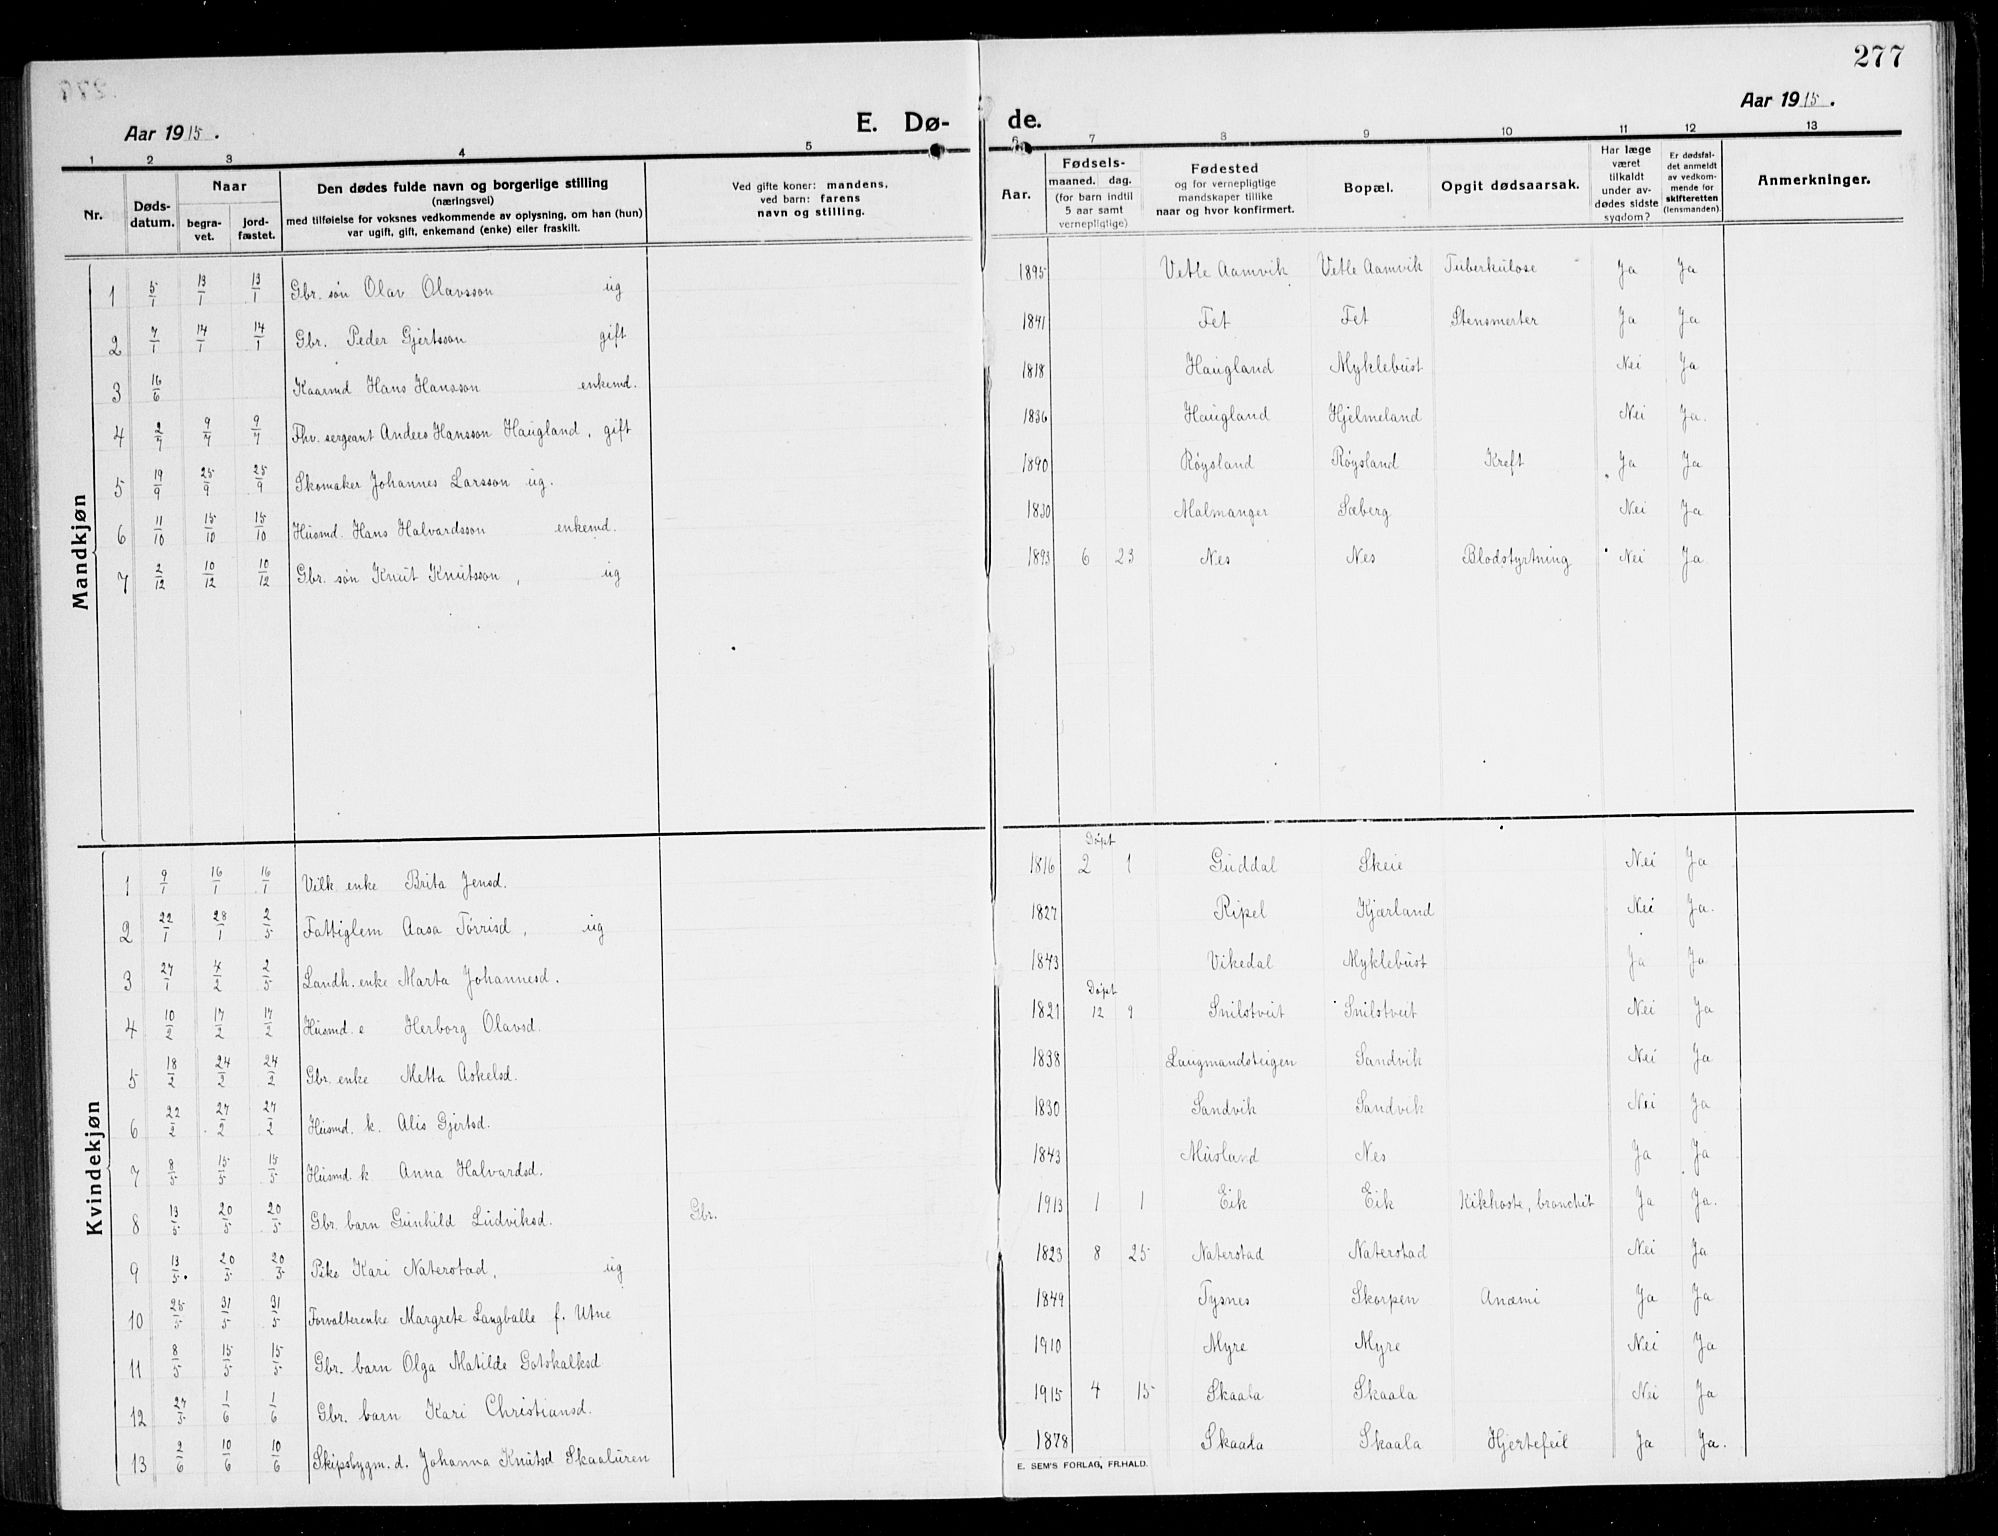 277
Aar 1915.
E. Dø-
de.
Aar 1915.
1 2 3 4 5 6 7 8 9 10 11 12 13
Nr.
Døds-datum.
Naar
begra-vet.
jord-fæstet.
Den dødes fulde navn og borgerlige stilling
(næringsvei)
med tilføielse for voksnes vedkommende av oplysning, om han (hun)
var ugift, gift, enkemand (enke) eller fraskilt.
Ved gifte koner: mandens,
ved barn: farens
navn og stilling.
Aar.
Fødsels-
maaned. dag.
(for barn indtil
5 aar samt
vernepligtige)
Fødested
og for vernepligtige
mandskaper tillike
naar og hvor konfirmert.
Bopæl.
Opgit dødsaarsak.
Har læge
været
tilkaldt
under av-
dødes sidste
sygdom?
Er dødsfal-
det anmeldt
av vedkom-
mende for
skifteretten
(lensmanden).
Anmerkninger.
Mandkjøn
1 5/1 13/1 13/1 Gbr. søn Olav Olavsson ug 1895 Vetle Aamvik Vetle Aamvik Tuberkulose Ja Ja
2 7/1 14/1 14/1 Gbr. Peder Gjertsson gift 1841 Fet Fet Stensmerter Ja Ja
3 16/6 Kaarmd Hans Hansson enkemd. 1818 Haugland Myklebust Nei Ja
4 2/7 9/7 9/7 Fhv. sergeant Anders Hansson Haugland, gift 1836 Haugland Hjelmeland Nei Ja.
5 19/9 25/9 25/9 Skomaker Johannes Larsson ug. 1890 Røysland Røysland Kreft Ja Ja
6 11/10 15/10 15/10 Husmd. Hans Halvardsson enkemd. 1830 Malmanger Sæberg Nei Ja
7 2/12 10/12 10/12 Gbr. søn Knut Knutsson, ug 1893 6 23 Nes Nes Blodstyrtning Nei Ja.
Kvindekjøn
Døpt
1 9/1 16/1 16/1 Vilk. enke Brita Jensd. 1816 2 1 Guddal Skeie Nei Ja
2 22/1 28/1 2/5 Fattiglem Aasa Tørrisd, ug 1827 Ripel Kjærland Nei Ja.
3 27/1 4/2 2/5 Landh. enke Marta Johannesd. 1843 Vikedal Myklebust Ja Ja
Døpt
4 10/2 17/2 17/2 Husmd. e Herborg Olavsd. 1821 12 9 Snilstveit Snilstveit Nei Ja
5 18/2 24/2 24/2 Gbr. enke Metta Askelsd. 1838 Laugmandsteigen Sandvik Nei Ja
6 22/2 27/2 27/2 Husmd. k. Alis Gjertsd. 1830 Sandvik Sandvik Nei Ja
7 8/5 15/5 15/5 Husmd. k Anna Halvardsd. 1843 Musland Nes Ja Ja
8 13/5 20/5 20/5 Gbr. barn Gunhild Ludviksd. Gbr. 1913 1 1 Eik Eik Kikhoste, bronchit Ja Ja.
9 13/5 20/5 20/5 Pike Kari Naterstad, ug 1823 8 25 Naterstad Naterstad Nei Ja
10 25/5 31/5 31/5 Forvalterenke Margrete Langballe f. Utne 1849 Tysnes Skorpen Anæmi Ja Ja
11 8/5 15/5 15/5 Gbr. barn Olga Matilde Gotskalksd 1910 Myre Myre Nei Ja
12 27/5 1/6 1/6 Gbr. barn Kari Christiansd. 1915 4 15 Skaala Skaala Nei Ja
13 2/6 10/6 10/6 Skipsbygm. d. Johanna Knutsd Skaaluren 1878 Skaala Skaala Hjertefeil Ja Ja.
E. SEM'S FORLAG, FR.HALD.